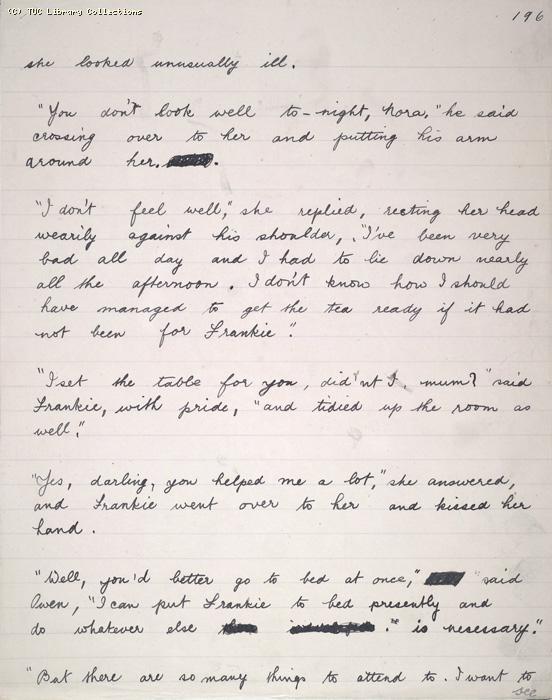 (C) TUC Library Collections
196
she looked unusually ill.
"You don't look well to-night, Nora," he said
crossing over to her and putting his arm
around her.
"I don't feel well," she replied, resting her head
wearily against his shoulder, "I've been very
bad all day and I had to lie down nearly
all the afternoon. I don't know how I should
have managed to get the tea ready if it had
not been for Frankie".
"I set the table for you, did'nt I, mum?" said
Frankie, with pride, "and tidied up the room as
well".
"Yes, darling, you helped me a lot," she answered,
and Frankie went over to her and kissed her
hand.
"Well, you'd better go to bed at once," said
Owen, "I can put Frankie to bed presently and
do whatever else is necessary."
"But there are so many things to attend to. I want to
see